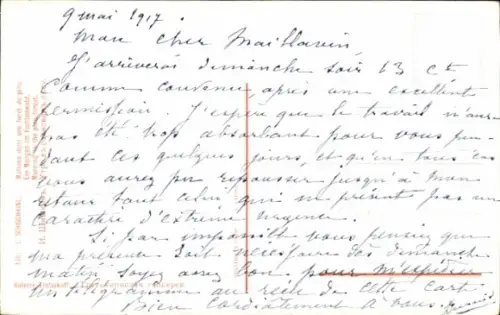 9 mai 1917.
Mon cher Maillavin,
J'arriverai dimanche soir 13 ct
comme convenu, après une excellente
permission. J'espère que le travail n'aura
pas été trop absorbant pour vous pen
dant ces quelques jours, et qu'en tous cas
vous aurez pu repousser jusqu'à mon
retour tout celui qui ne présente pas un
caractère d'extrême urgence.
Si par impossible vous pensiez que
ma présence soit nécessaire dès dimanche
matin, soyez assez bon pour m'expédier
un télégramme au reçu de cette carte.
Bien cordialement à vous.